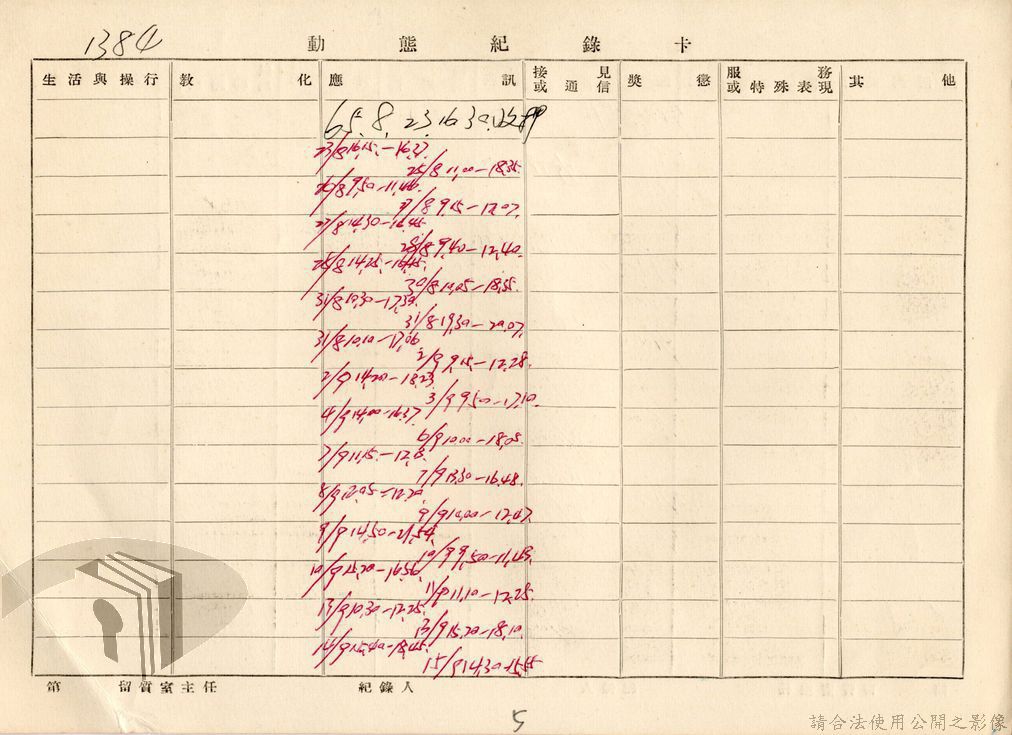 1384
動態紀錄卡
生活與操行 教化 應訊 接見或通信 獎懲 服務或特殊表現 其他
65.8.23.16.30.收押
23/8 16,15.—16,37.
25/8 11,00—18,35.
26/8 9,50—11,46.
27/8 9,15—12,07.
27/8 14,30—16,45.
28/8 9,40—12,40.
30/8 10,05—18,55.
31/8 10,30—17,30.
31/8 19,30—20,07.
31/8 10,10—17,06
2/9 9,15—12,28.
2/9 14,20—18,23.
3/9 9,50—17,10.
4/9 14,00—16,37.
6/9 10,00—18,08.
7/9 11,15.—12,13.
7/9 13,30—16,48.
8/9 12,05—12,20.
9/9 10,00—12,47.
9/9 14,50—21,54.
10/9 9,50—11,43.
10/9 15,20—16,56.
11/9 11,10—12,25.
13/9 10,30—12,25.
13/9 15,20—18,10.
14/9 15,40—18,45.
15/9 14,30—15,55
第 留質室主任 紀錄人
5
請合法使用公開之影像